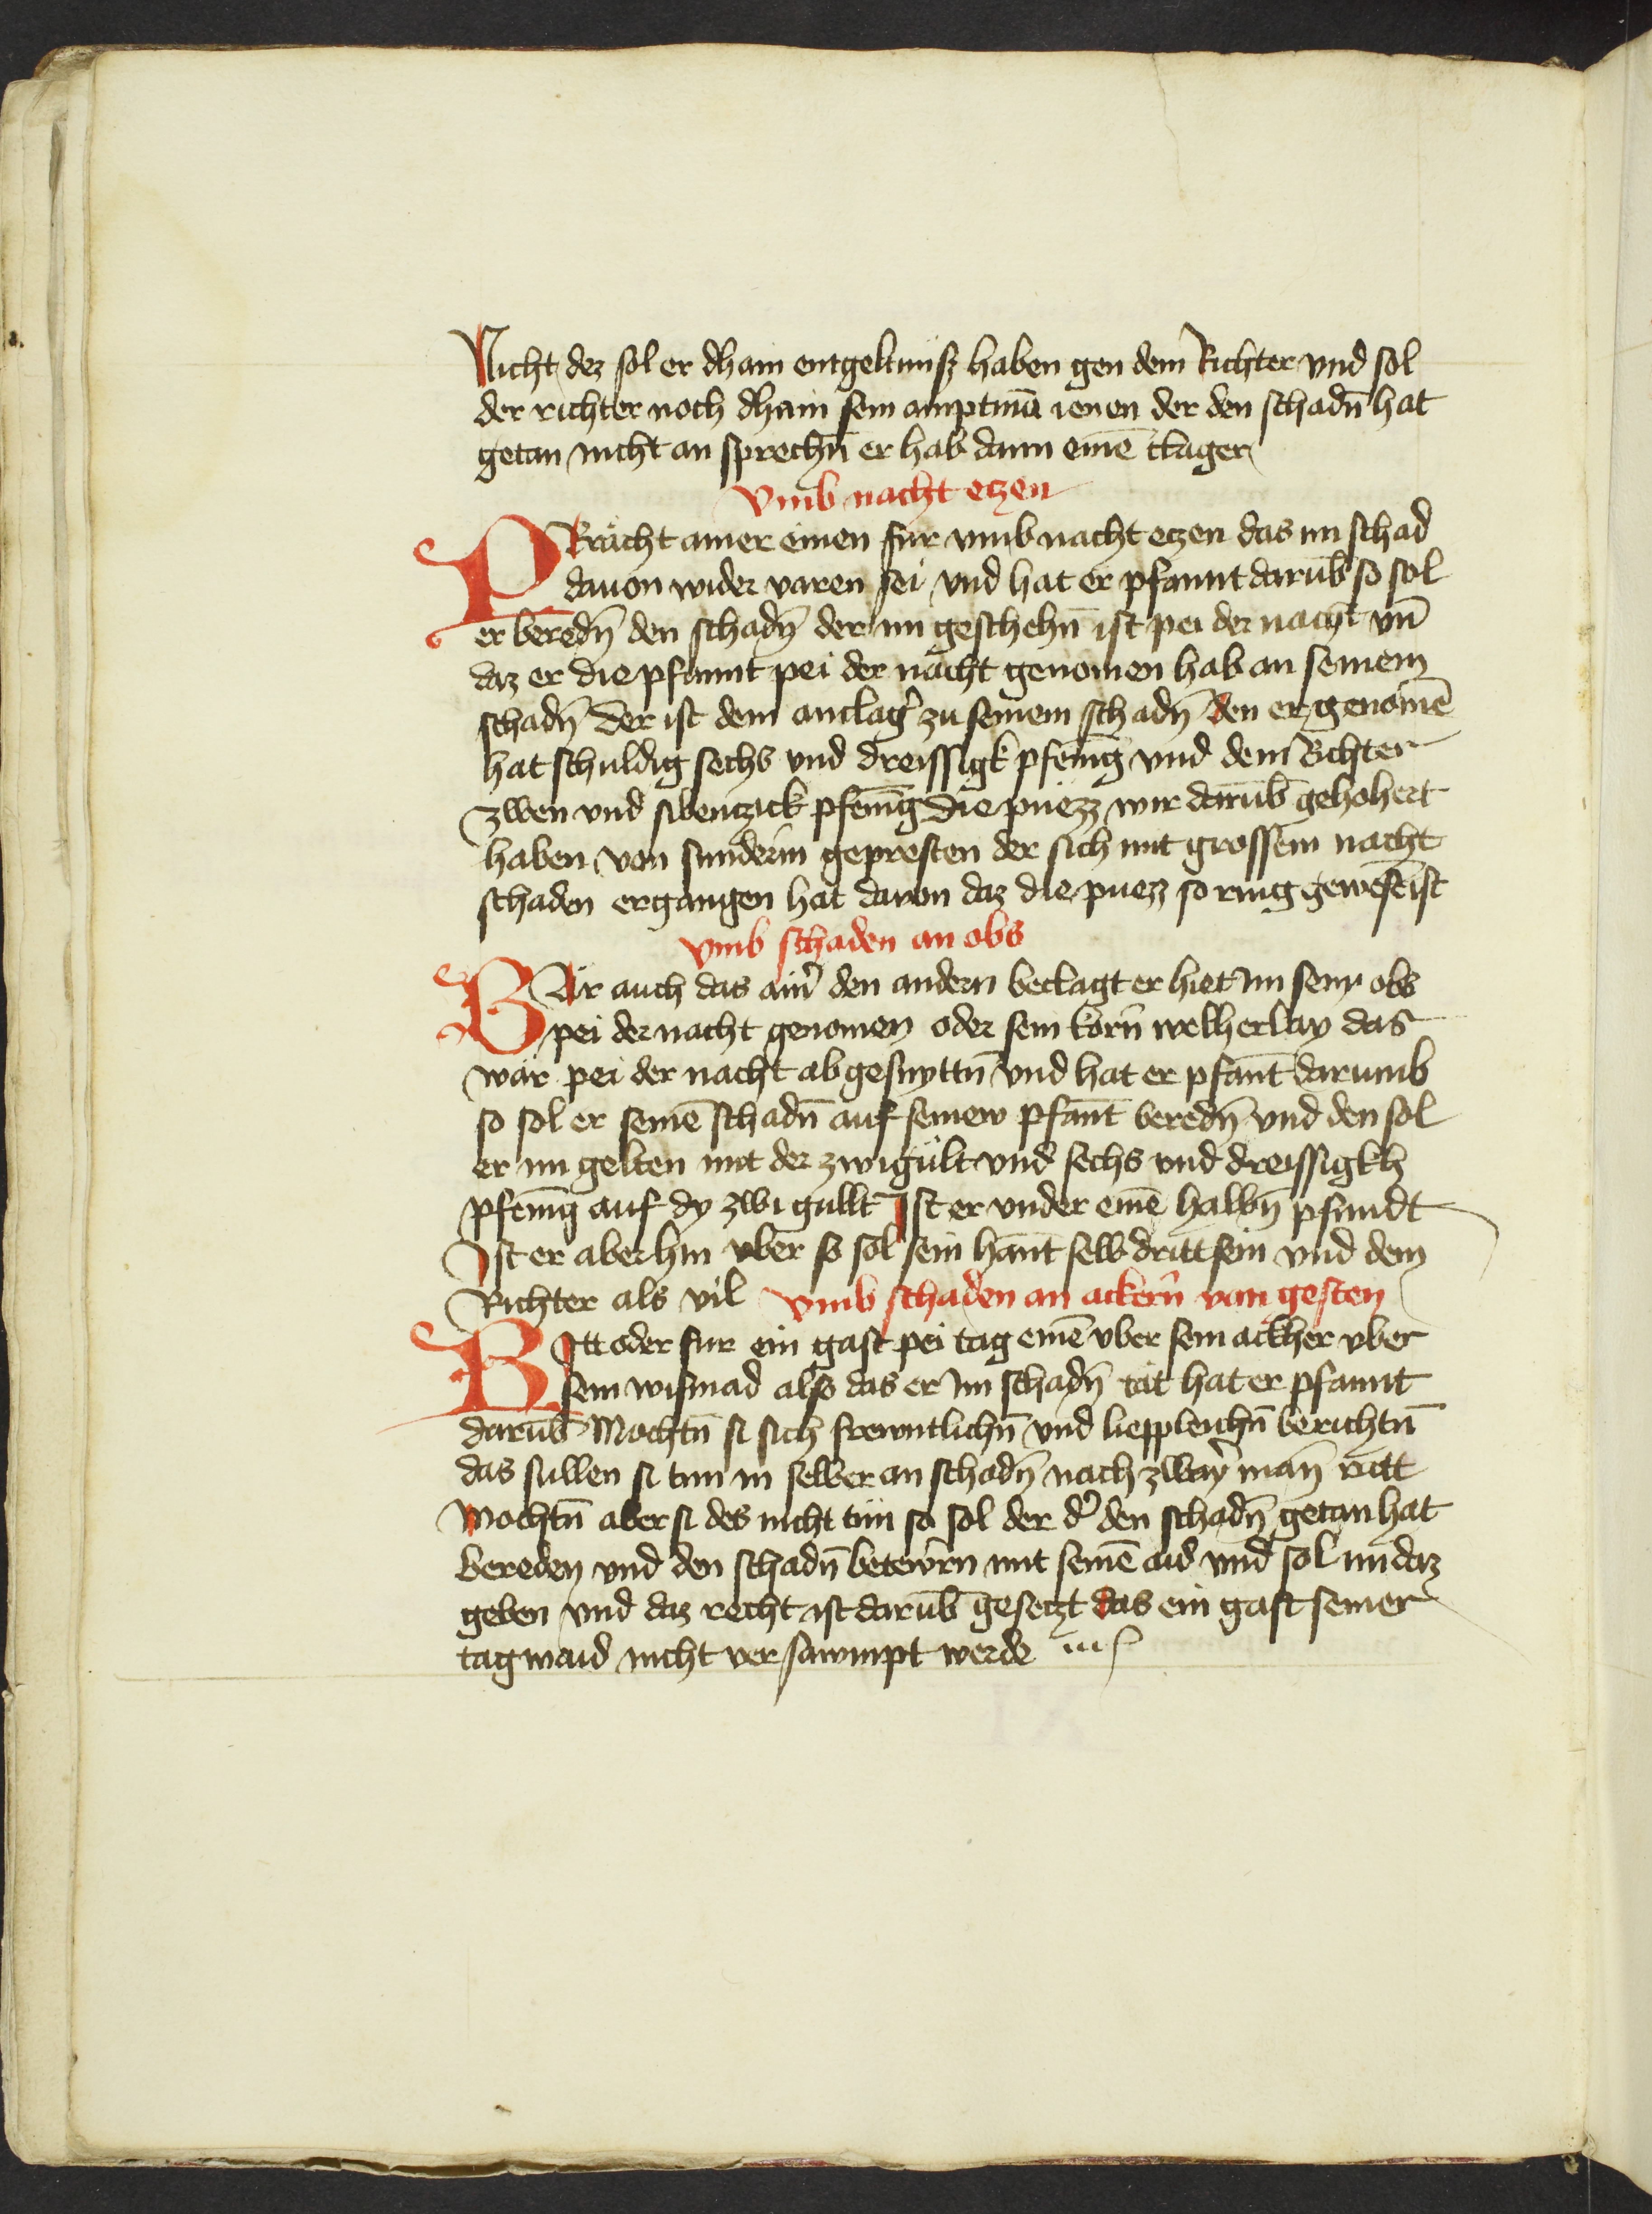 Nicht dez sol er dhain entgeltnüsz haben gen dem Richter vnd sol
der richter noch dhain sein amptmā ienen der den schadn̄ hat
getan nicht an sprechn̄ er hab dann einē clager
Vmb nacht etzen
PRächt ainer einen für vmb nacht etzen das im schad
dauon wider varen sei vnd hat er pfannt darūb so sol
er beredn̄ den schadn̄ der im geschehn̄ ist pei der nacht vn̄
daz er die pfannt pei der nacht genomen hab an seinem
schadn̄ der ist dem anclag̉ zu seinem schadn̄ den er genomē
hat schuldig sechs vnd dreissigk pfēnīg vnd dem Richter
zwen vnd sibentzick pfēnīg die puezz wir darūb gehohert
haben von sunderm gepresten der sich mit grossem nacht
schaden ergangen hat dauon daz die puezz so ring gewesē ist
vmb schaden an obs
WÄr auch das ain̉ den andern beclagt er hiet im sein obs
pei der nacht genomen oder sein korn̄ welherlay das
wär pei der nacht abgesnyttn̄ vnd hat er pfant darumb
so sol er seinē schadn̄ auf seinew pfant beredn̄ vnd den sol
er im gelten mit der zwigült vnd sechs vnd dreissigkh
pfēnīg auf dy zwi gullt Ist er vnder einē halbn̄ pfundt
Ist er aber hin vber so sol sein hant selb dritt sein vnd dem
Richter als vil vmb schaden an ackern̄ von gesten
RItt oder fur ein gast pei tag einē vber sein ackher vber
sein wismad also das er im schadn̄ tät hat er pfannt
darūb Mochtn̄ si sich frewntlichn̄ vnd liepleichn̄ berichtn̄
das sullen si tun in selber an schadn̄ nach zwaỷ man̄ rätt
Mochtn̄ aber si des nicht tün so sol der d̉ den schadn̄ getan hat
bereden vnd den schadn̄ betewrn mit seinē aid vnd sol im daz
geben vnd daz recht ist darūb gesetzt das ein gast seiner
tagwaid nicht versawmpt werde